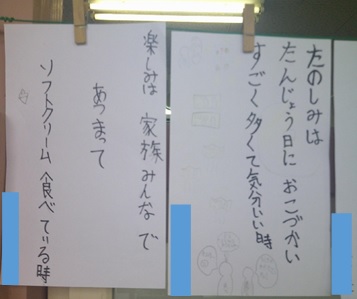 たのしみは
たんじょう日に おこづかい
すごく多くて気分いい時
楽しみは 家族みんなで
あつまって
ソフトクリーム 食べている時